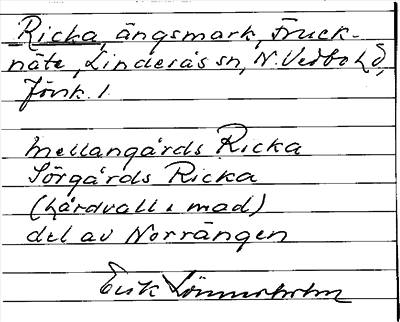 Ricka, ängsmark, Fruck-
näte, Linderås sn, N. Vedbo hd,
Jönk. l.
Mellangårds Ricka
Sörgårds Ricka
(hårdvall i mad)
del av Norrängen
Erik Lönnerholm